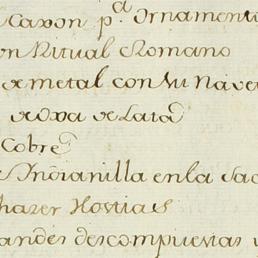 Caxon p.ª Ornamento
on Ritual Romano
de metal con su Nave
de oxa de Lata
Cobre
Indianilla en la Sac
hazer Hostias
andes descompuestas